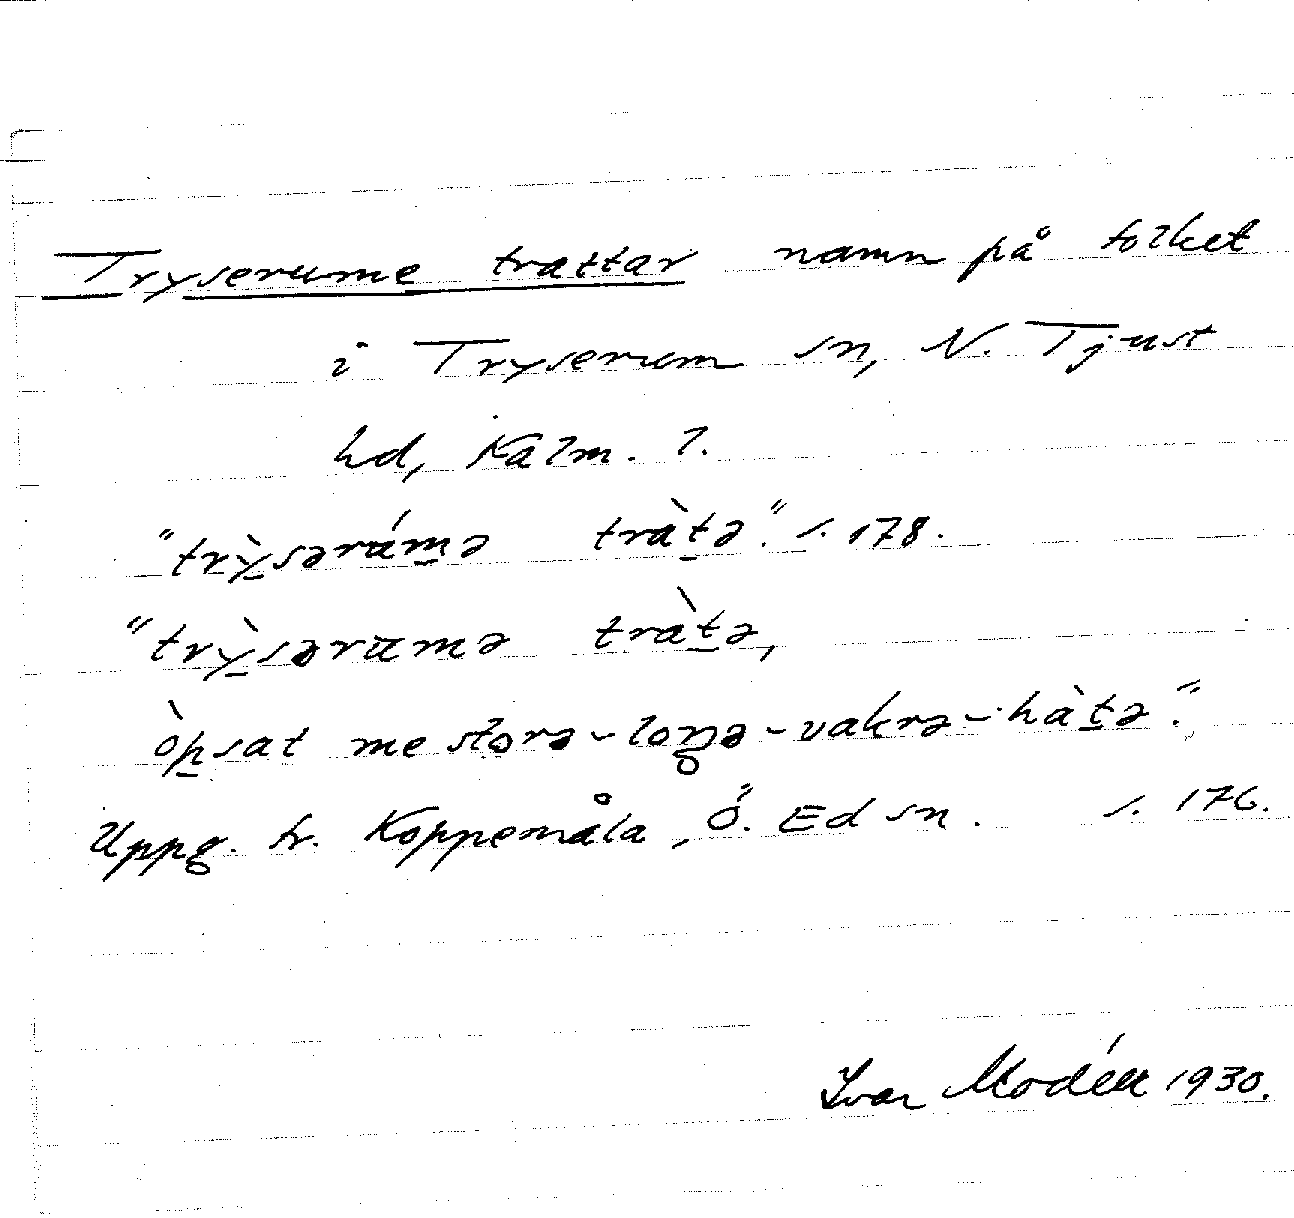 Tryserume trattar namn på folket
i Tryserum sn, N. Tjust
hd, Kalm. l.
"trỳ̱səráma̱ə tràṯə". s. 178.
"trỳ̱sərumə tràṯə,
òp̱sat me storə-loŋə-vakrə-hàṯə".
Uppg. fr. Koppemåla, Ö. Ed sn. s. 176.
Ivar Modéer 1930.